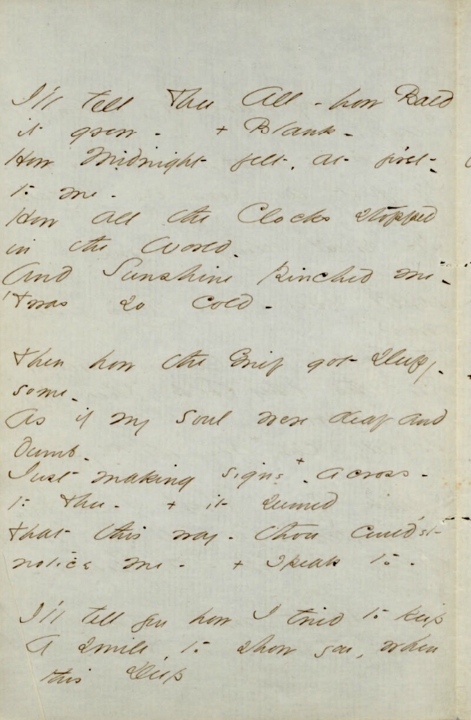 I'll tell Thee All - how Bald
it grew - + Blank -
How Midnight felt, at first -
to me -
How all the Clocks stopped
in the World -
And Sunshine pinched me -
'Twas so cold -
Then how the Grief got sleepy -
some -
As if my soul were deaf and
dumb -
Just making signs + across -
to Thee - + it seemed
That this way - thou could'st
notice me - + speak to -
I'll tell you how I tried to keep
A smile, to show you, when
this Deep